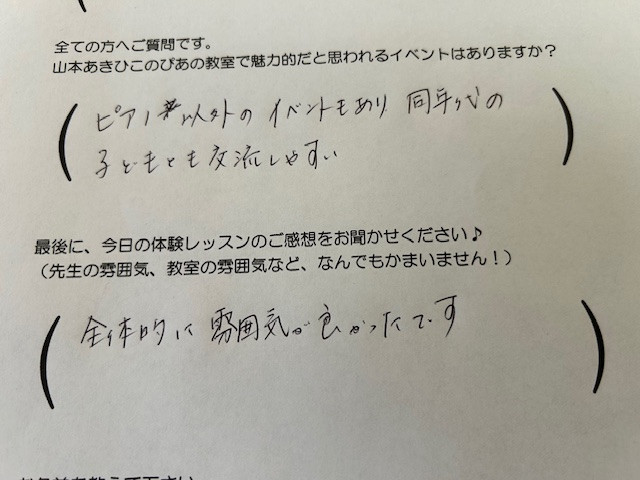 全ての方へご質問です。
山本あきひこのぴあの教室で魅力的だと思われるイベントはありますか？
ピアノ以外のイベントもあり 同年代の
子どもとも交流しやすい
最後に、今日の体験レッスンのご感想をお聞かせください♪
（先生の雰囲気、教室の雰囲気など、なんでもかまいません！）
全体的に雰囲気が良かったです